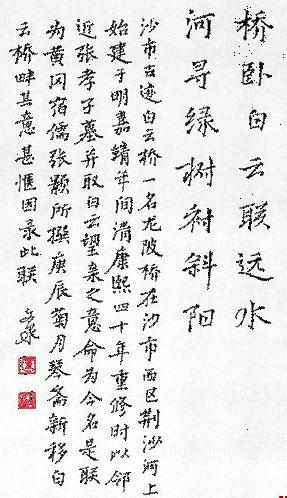 桥卧白云联远水
河寻绿树衬斜阳
沙市古迹白云桥一名龙陂桥在沙市西区荆沙河上
始建于明嘉靖年间清康熙四十年重修时以邻
近张孝子墓并取白云望亲之意命为今名是联
为黄冈宿儒张颢所撰庚辰菊月琴斋新移白
云桥畔其意甚惬因录此联